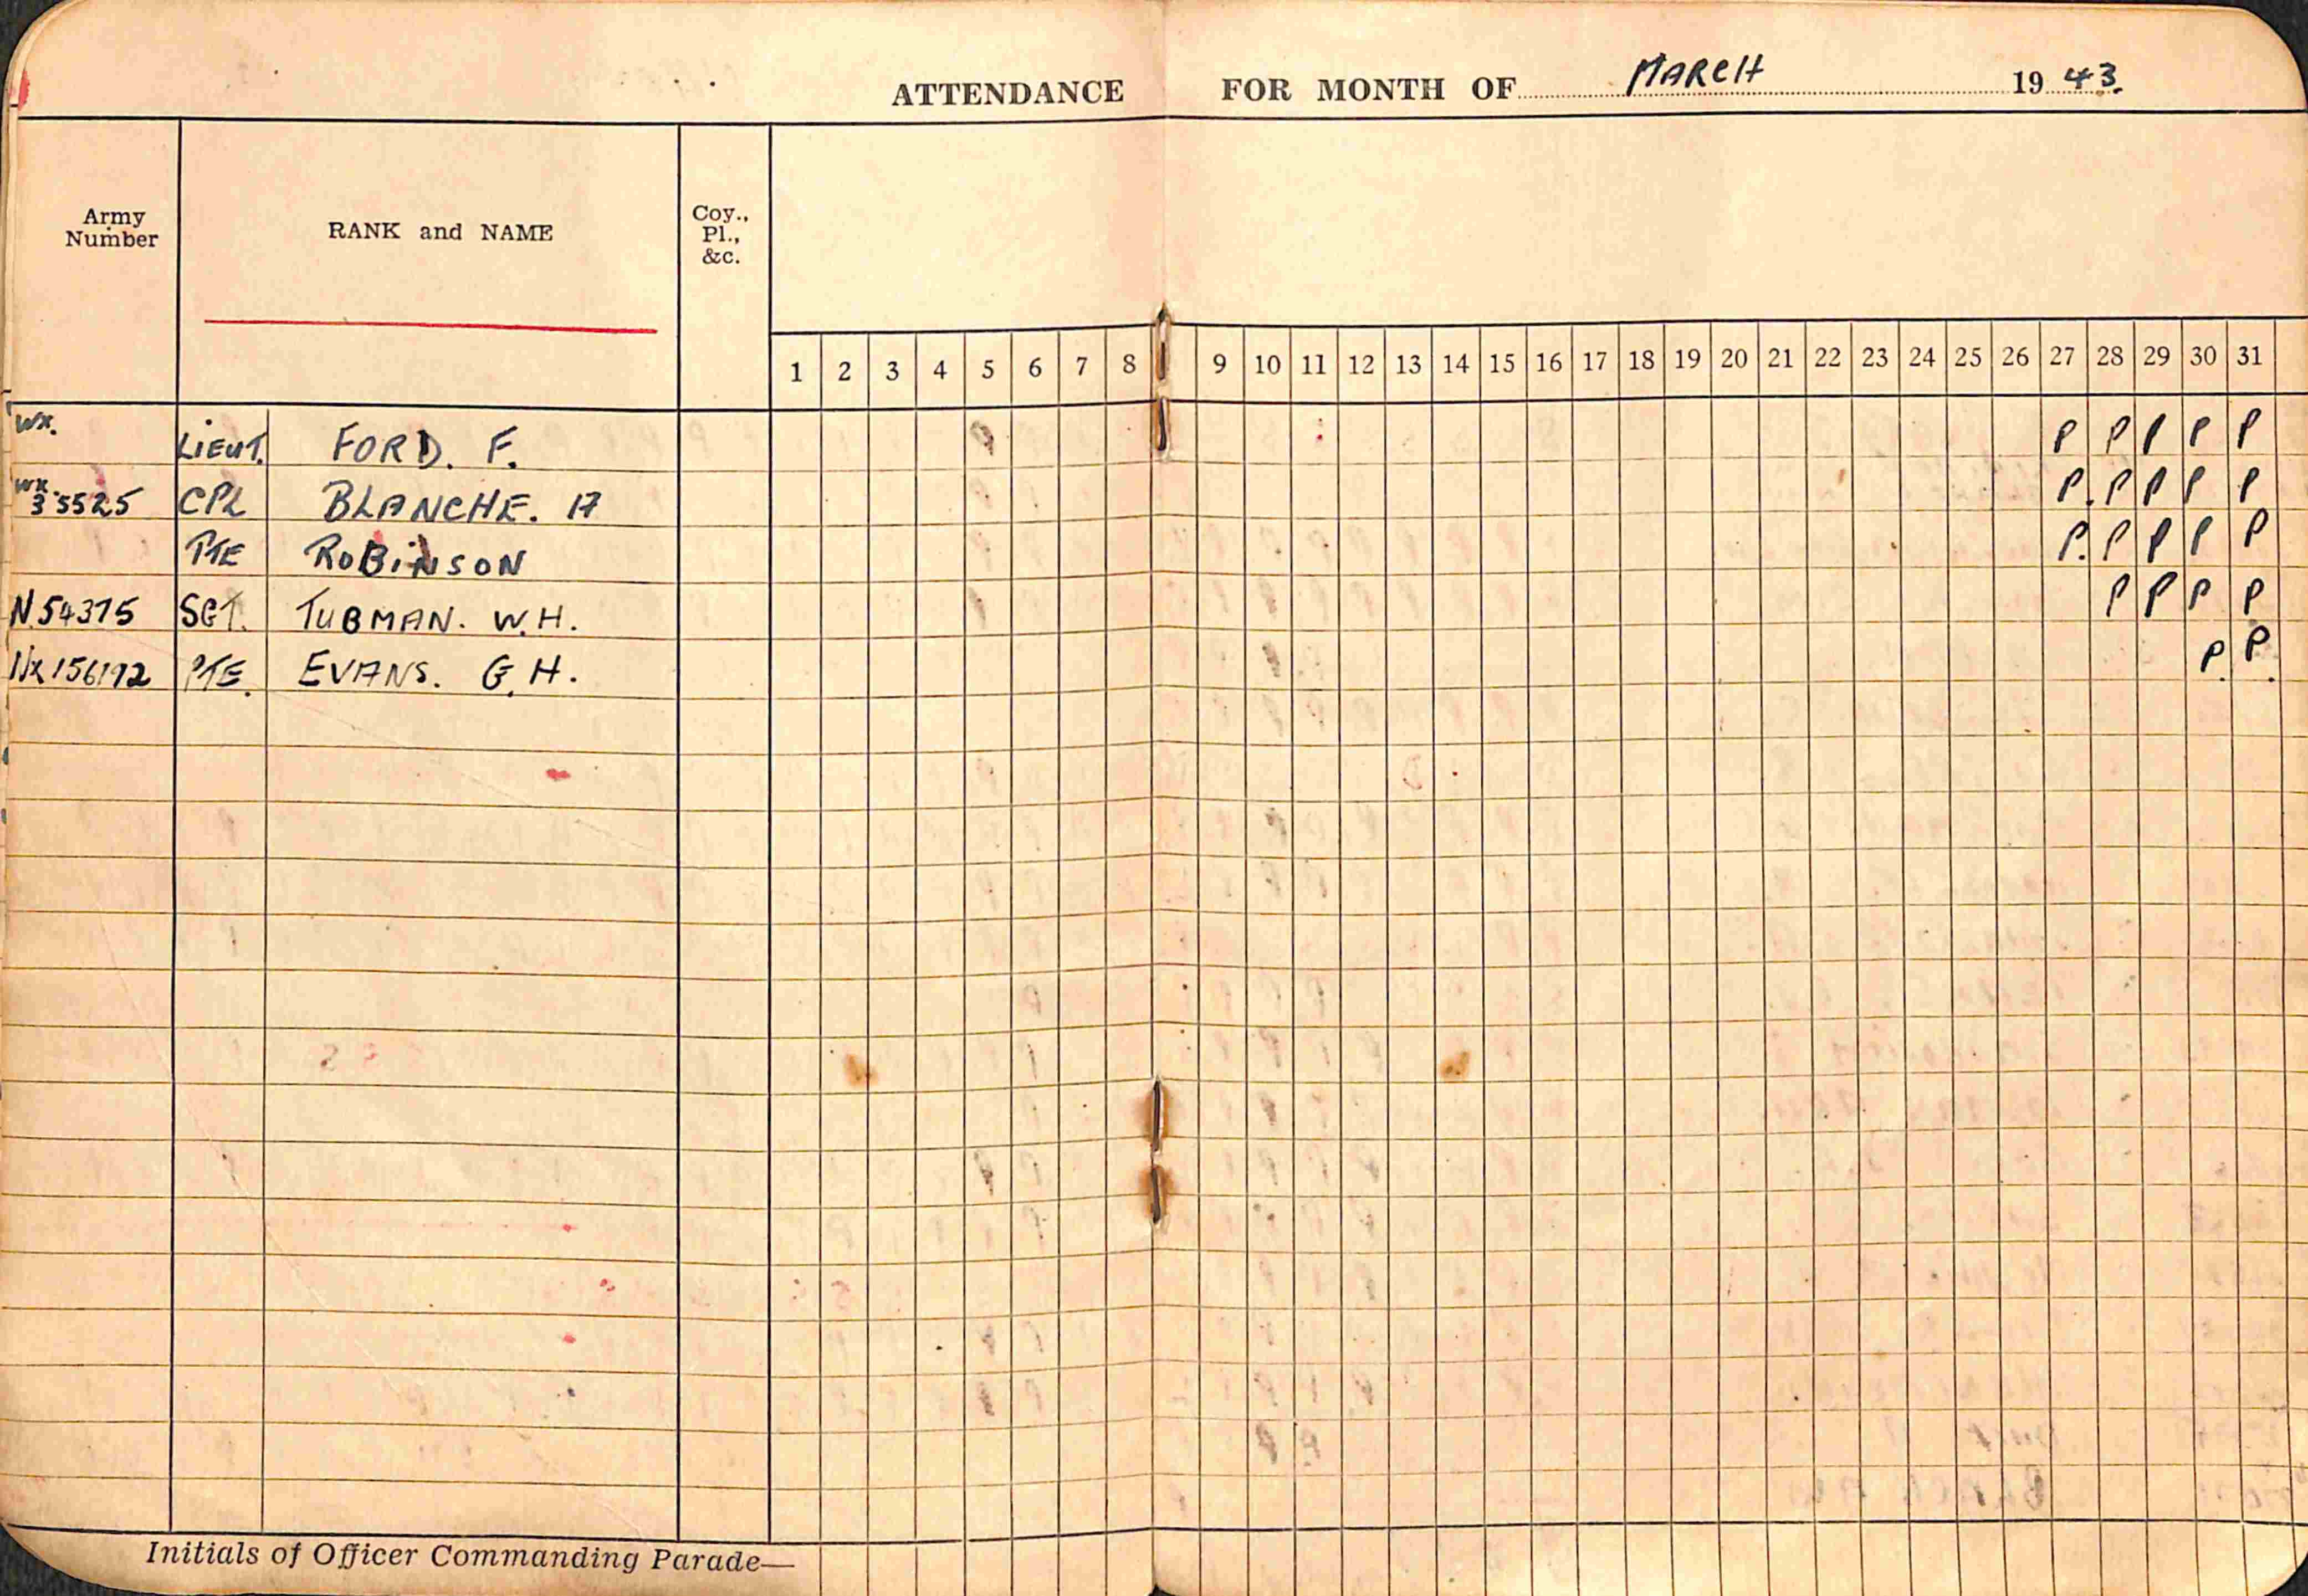 ATTENDANCE FOR MONTH OF MARCH 19 43.
Army Number RANK and NAME Coy., Pl., &c.
1 2 3 4 5 6 7 8 9 10 11 12 13 14 15 16 17 18 19 20 21 22 23 24 25 26 27 28 29 30 31
WX. LIEUT. FORD. F. P P P P P
WX. 35525 CPL BLANCHE. A P. P P P P
PTE ROBINSON P. P P P P
N.54375 SGT. TUBMAN. W.H. P P P P
NX 156192 PTE. EVANS. G.H. P. P.
Initials of Officer Commanding Parade—